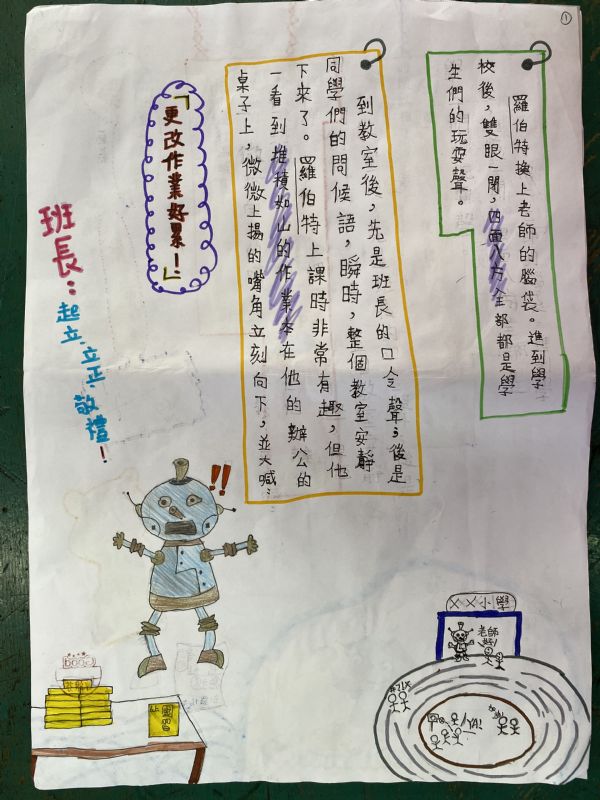 ①
羅伯特換上老師的腦袋。進到學
校後，雙眼一閉，四面八方全部都是學
生們的玩耍聲。
到教室後，先是班長的口令聲；後是
同學們的問候語，瞬時，整個教室安靜
下來了。羅伯特上課時非常有趣，但他
一看到堆積如山的作業本在他的辦公的
桌子上，微微上揚的嘴角立刻向下，並大喊：
「更改作業好累！」
班長：
起立、立正、敬禮！
!!
XX小學
老師
好!
YA!